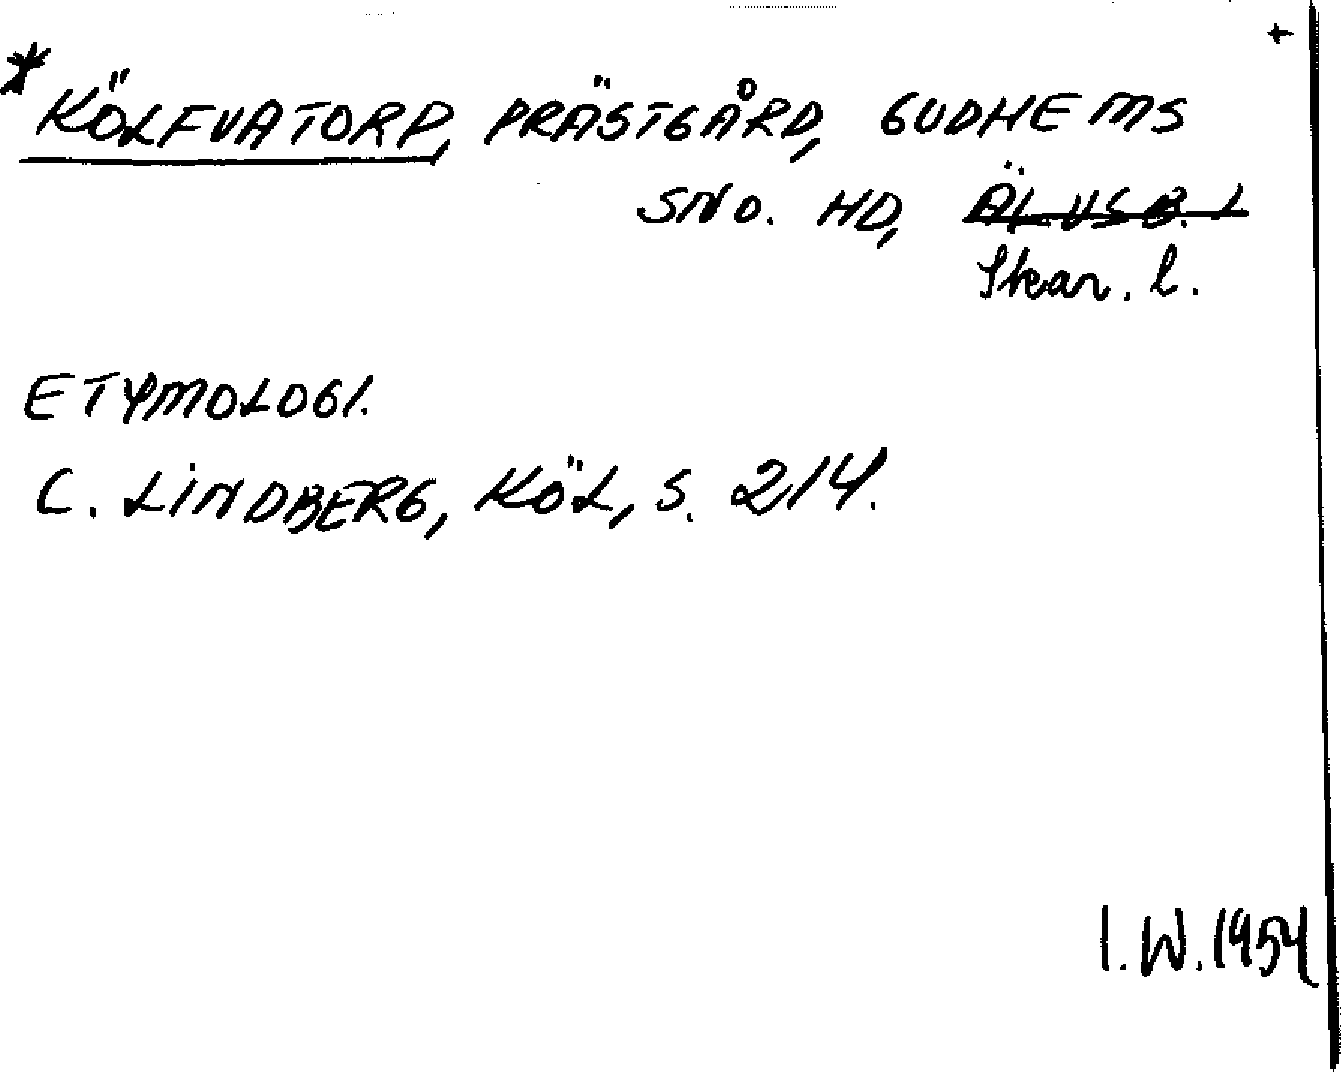 +
*KÖLFVATORP, PRÄSTGÅRD, GUDHEMS
SN O. HD, ÄLVSB. L
Skar. l.
ETYMOLOGI.
C. LINDBERG, KÖL, S. 214.
I.W. 1954